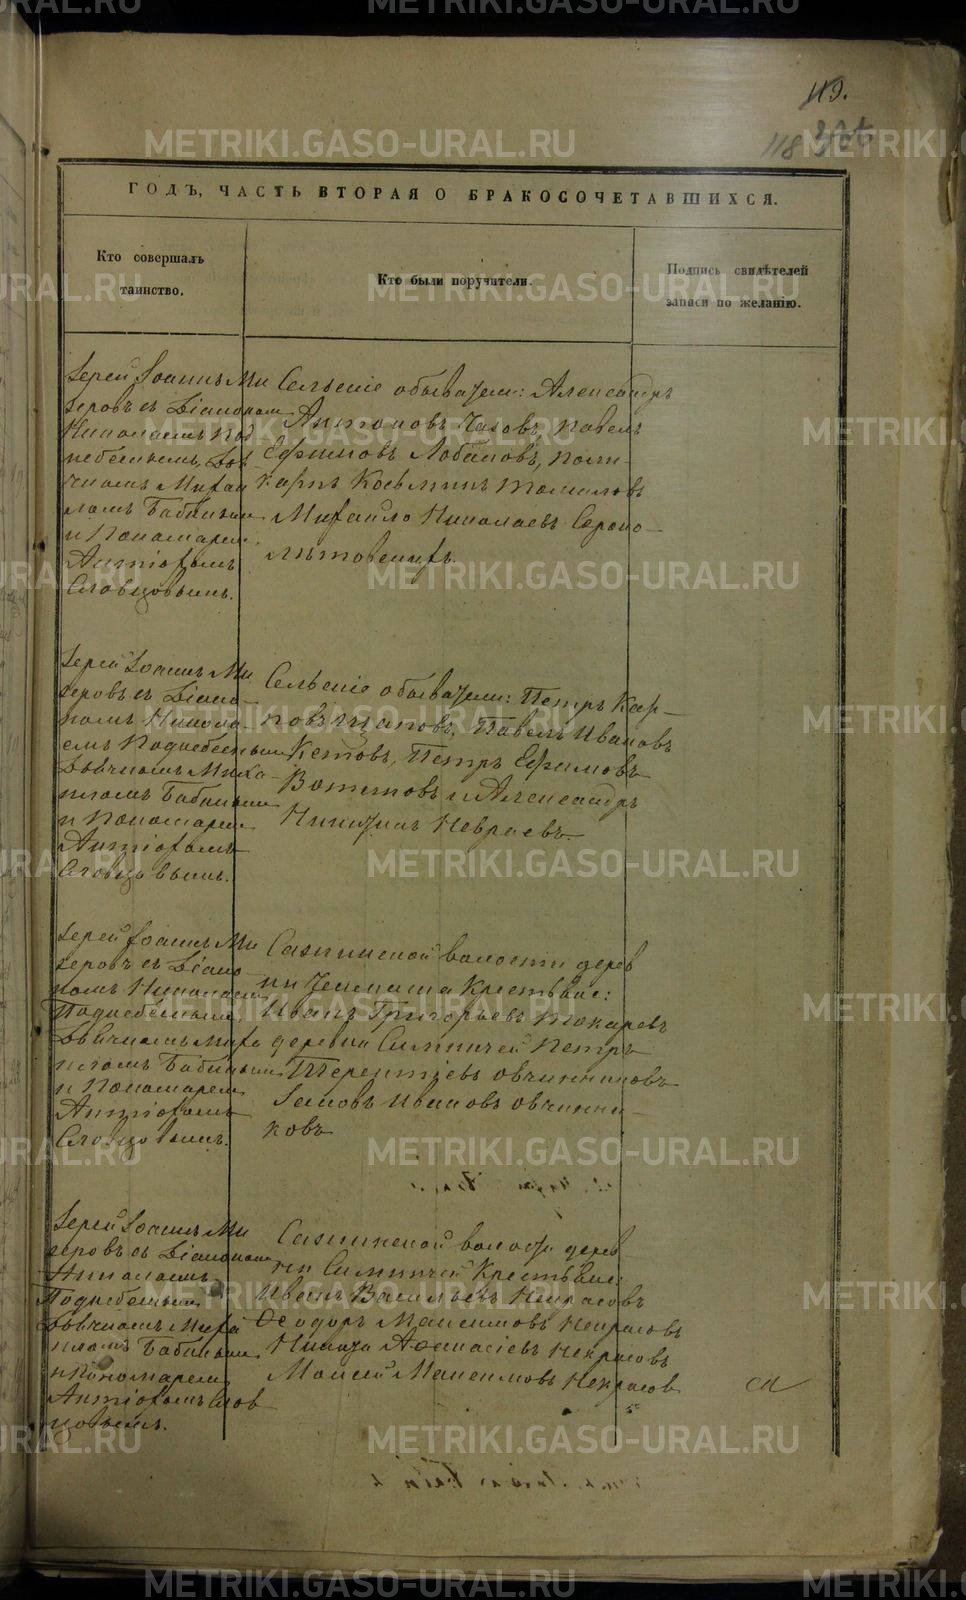 119.
118
ГОДЪ, ЧАСТЬ ВТОРАЯ О БРАКОСОЧЕТАВШИХСЯ.
Кто совершалъ
таинство.
Кто были поручители.
Подпись свидѣтелей
записи по желанію.
Іерей Іоаннъ Ми
неровъ съ Діакономъ
Николаемъ Под
небеснымъ, Дья-
чкомъ Михаи
ломъ Бабинымъ
и Пономаремъ
Антіохомъ
Словцовымъ.
Сельскіе обыватели: Александръ
Антоновъ Чазовъ, Павелъ
Ефимовъ Лобановъ, Поли-
карпъ Козьминъ Томиловъ
Михайло Николаевъ Скоро-
Іерей Іоаннъ Ми
неровъ съ Діако-
номъ Никола-
емъ Поднебеснымъ
Дьячкомъ Миха-
иломъ Бабинымъ
и Пономаремъ
Антіохомъ
Словцовымъ.
Сельскіе обыватели: Петръ Кар-
повъ Щаповъ, Павелъ Ивановъ
Кетовъ, Петръ Ефимовъ
Вотиновъ и Александръ
Никитинъ Невраевъ.
Іерей Іоаннъ Ми
неровъ съ Діако-
номъ Николаемъ
Поднебеснымъ,
Дьячкомъ Миха
иломъ Бабинымъ
и Пономаремъ
Антіохомъ
Словцовымъ.
Сажинской волости дерев
ни Крестьяне:
Иванъ Григорьевъ Токаревъ
деревни Симинчей Петръ
Терентіевъ Овчинниковъ
Ивановъ Овчинни-
ковъ
Іерей Іоаннъ Ми
неровъ съ Діакономъ
Николаемъ
Поднебеснымъ
Дьячкомъ Миха
иломъ Бабинымъ
и Пономаремъ
Антіохомъ Слов
цовымъ.
Сажинской волости дерев
ни Симинчей Крестьяне:
Иванъ Васильевъ Некрасовъ
Ѳеодоръ Максимовъ Некрасовъ
Никита Аѳанасіевъ Некрасовъ
Моисей Максимовъ Некрасов
ъ
METRIKI.GASO-URAL.RU